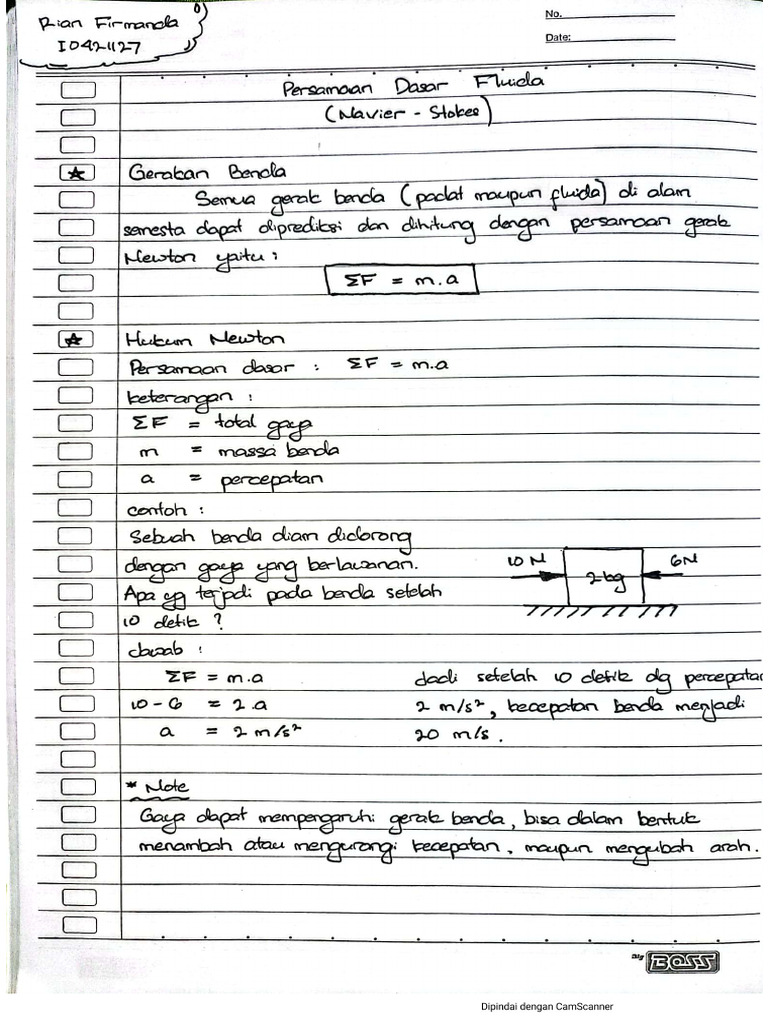 Rian Firmanda
I0421127
No.
Date:
Persamaan Dasar Fluida
(Navier - Stokes)
Gerakan Benda
Semua gerak benda (padat maupun fluida) di alam
semesta dapat diprediksi dan dihitung dengan persamaan gerak
Newton yaitu :
ΣF = m.a
Hukum Newton
Persamaan dasar : ΣF = m.a
keterangan :
ΣF = total gaya
m = massa benda
a = percepatan
contoh :
Sebuah benda diam didorong
dengan gaya yang berlawanan.
10 N 2 kg 6N
Apa yg terjadi pada benda setelah
10 detik ?
Jawab :
ΣF = m.a
10 - 6 = 2.a
a = 2 m/s²
Jadi setelah 10 detik dg percepatan
2 m/s², kecepatan benda menjadi
20 m/s.
* Note
Gaya dapat mempengaruhi gerak benda, bisa dalam bentuk
menambah atau mengurangi kecepatan, maupun mengubah arah.
Big BOSS
Dipindai dengan CamScanner